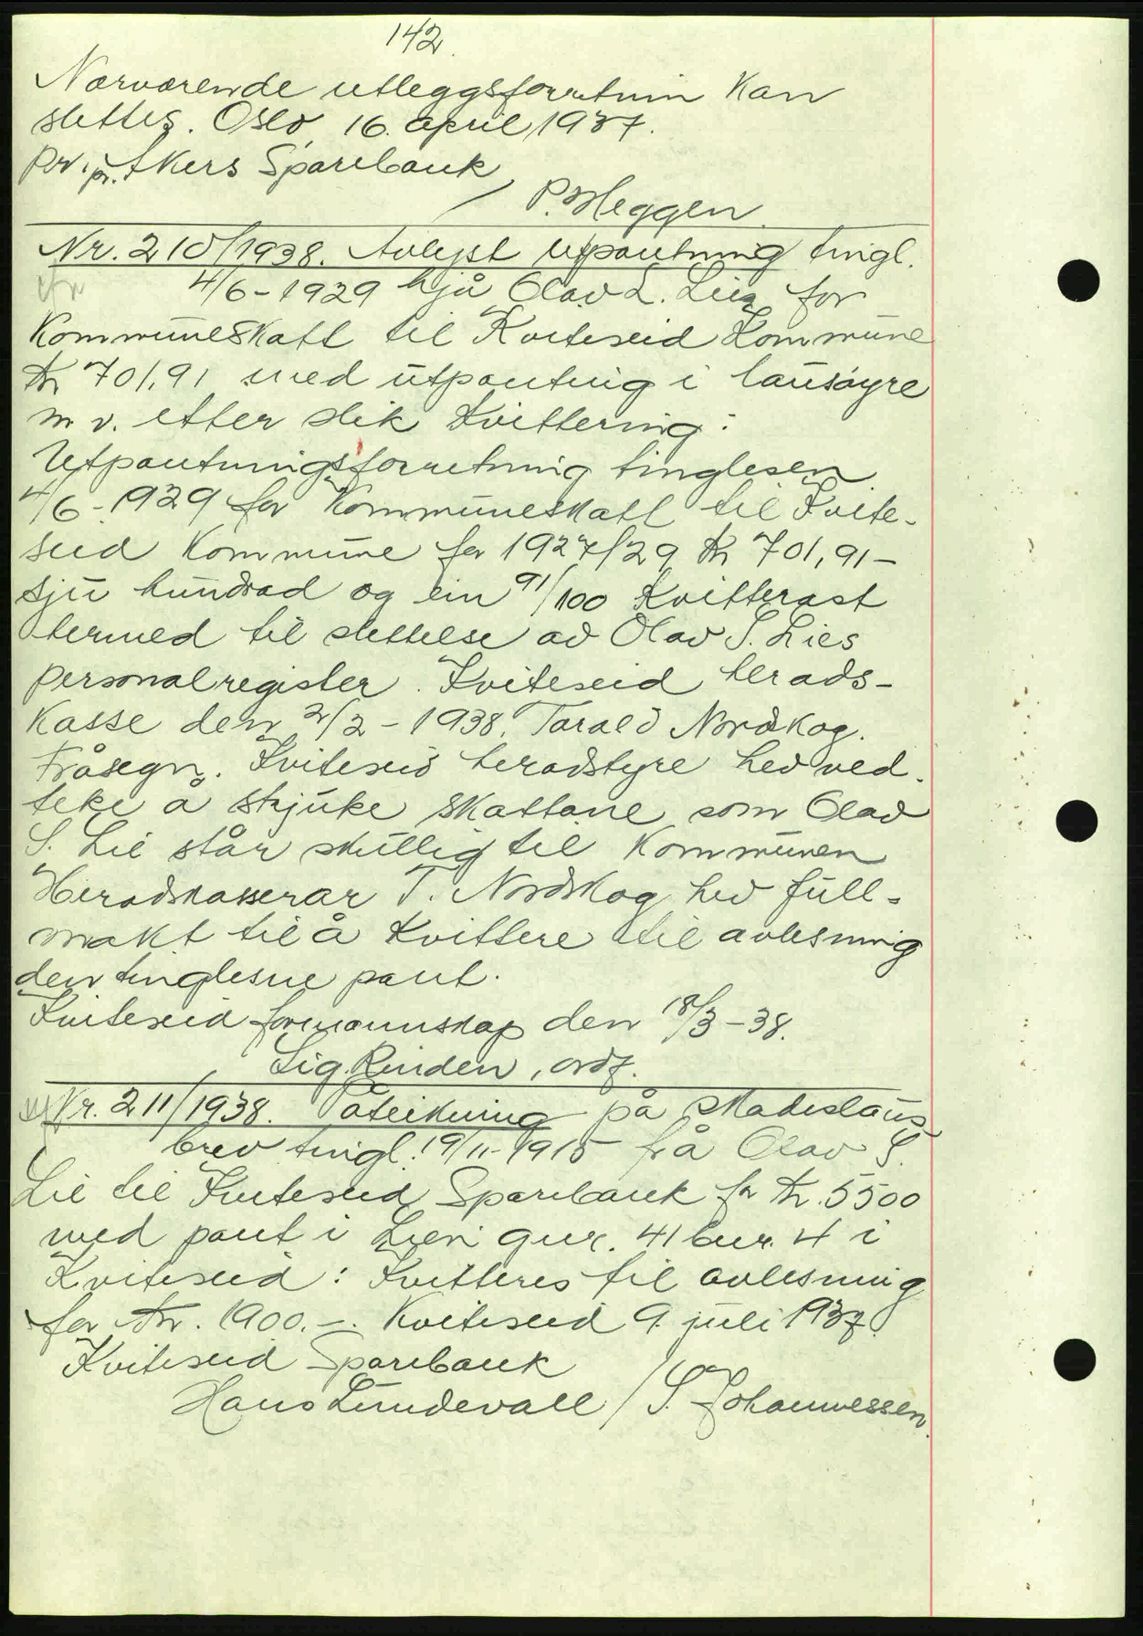 142.
Nærværende utleggsforretnin kan
slettes. Oslo, 16. april, 1937.
pr. pr. Akers Sparebank
P. Heggen
Nr. 210/1938. Avlyst utpantning tingl.
4/6-1929 hjå Olav L. Lie for
Kommuneskatt til Kviteseid Kommune
kr 701,91 med utpantnig i lausøyre
m v. etter slik kvittering:
Utpantningsforretning tinglesen
4/6-1929 for Kommuneskatt til Kvite-
seid Kommune for 1927/29 kr 701,91 -
sju hundrad og ein 91/100 kvitterast
hermed til slettelse av Olav S. Lies
personalregister. Kviteseid herads-
kasse den 2/2 - 1938. Tarald Nordskog.
Fråsegn. Kviteseid heradstyre hev ved-
teke å stryke skattane som Olav
S. Lie står skuldig til Kommunen
Heradskasserar T. Nordskog hev full-
makt til å kvittere til avlesning
den tinglesne pant.
Kviteseid formannskap den 18/3 - 38.
Sig. Rinden, ordf.
Nr. 211/1938. Påteikning på skadeslaus
brev tingl. 19/11-1915 frå Olav S.
Lie til Kviteseid Sparebank for kr. 5500
med pant i Lien gnr. 41 bnr. 4 i
Kviteseid: Kvitteres til avlesning
for kr. 1900.-. Kviteseid 9. juli 1937.
Kviteseid Sparebank
Hans Lundevall / S. Johannessen.